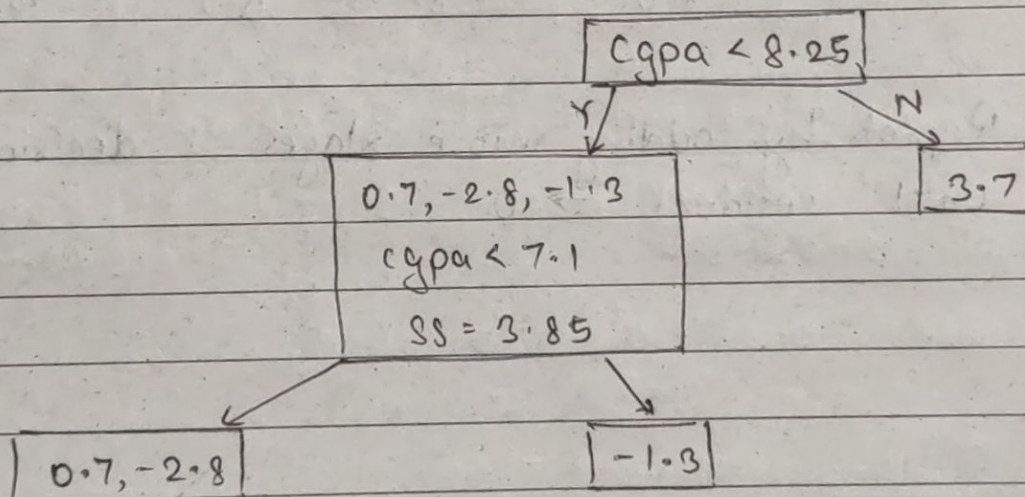 Cgpa < 8.25
Y
N
0.7, -2.8, -1.3
3.7
cgpa < 7.1
SS = 3.85
0.7, -2.8
-1.3